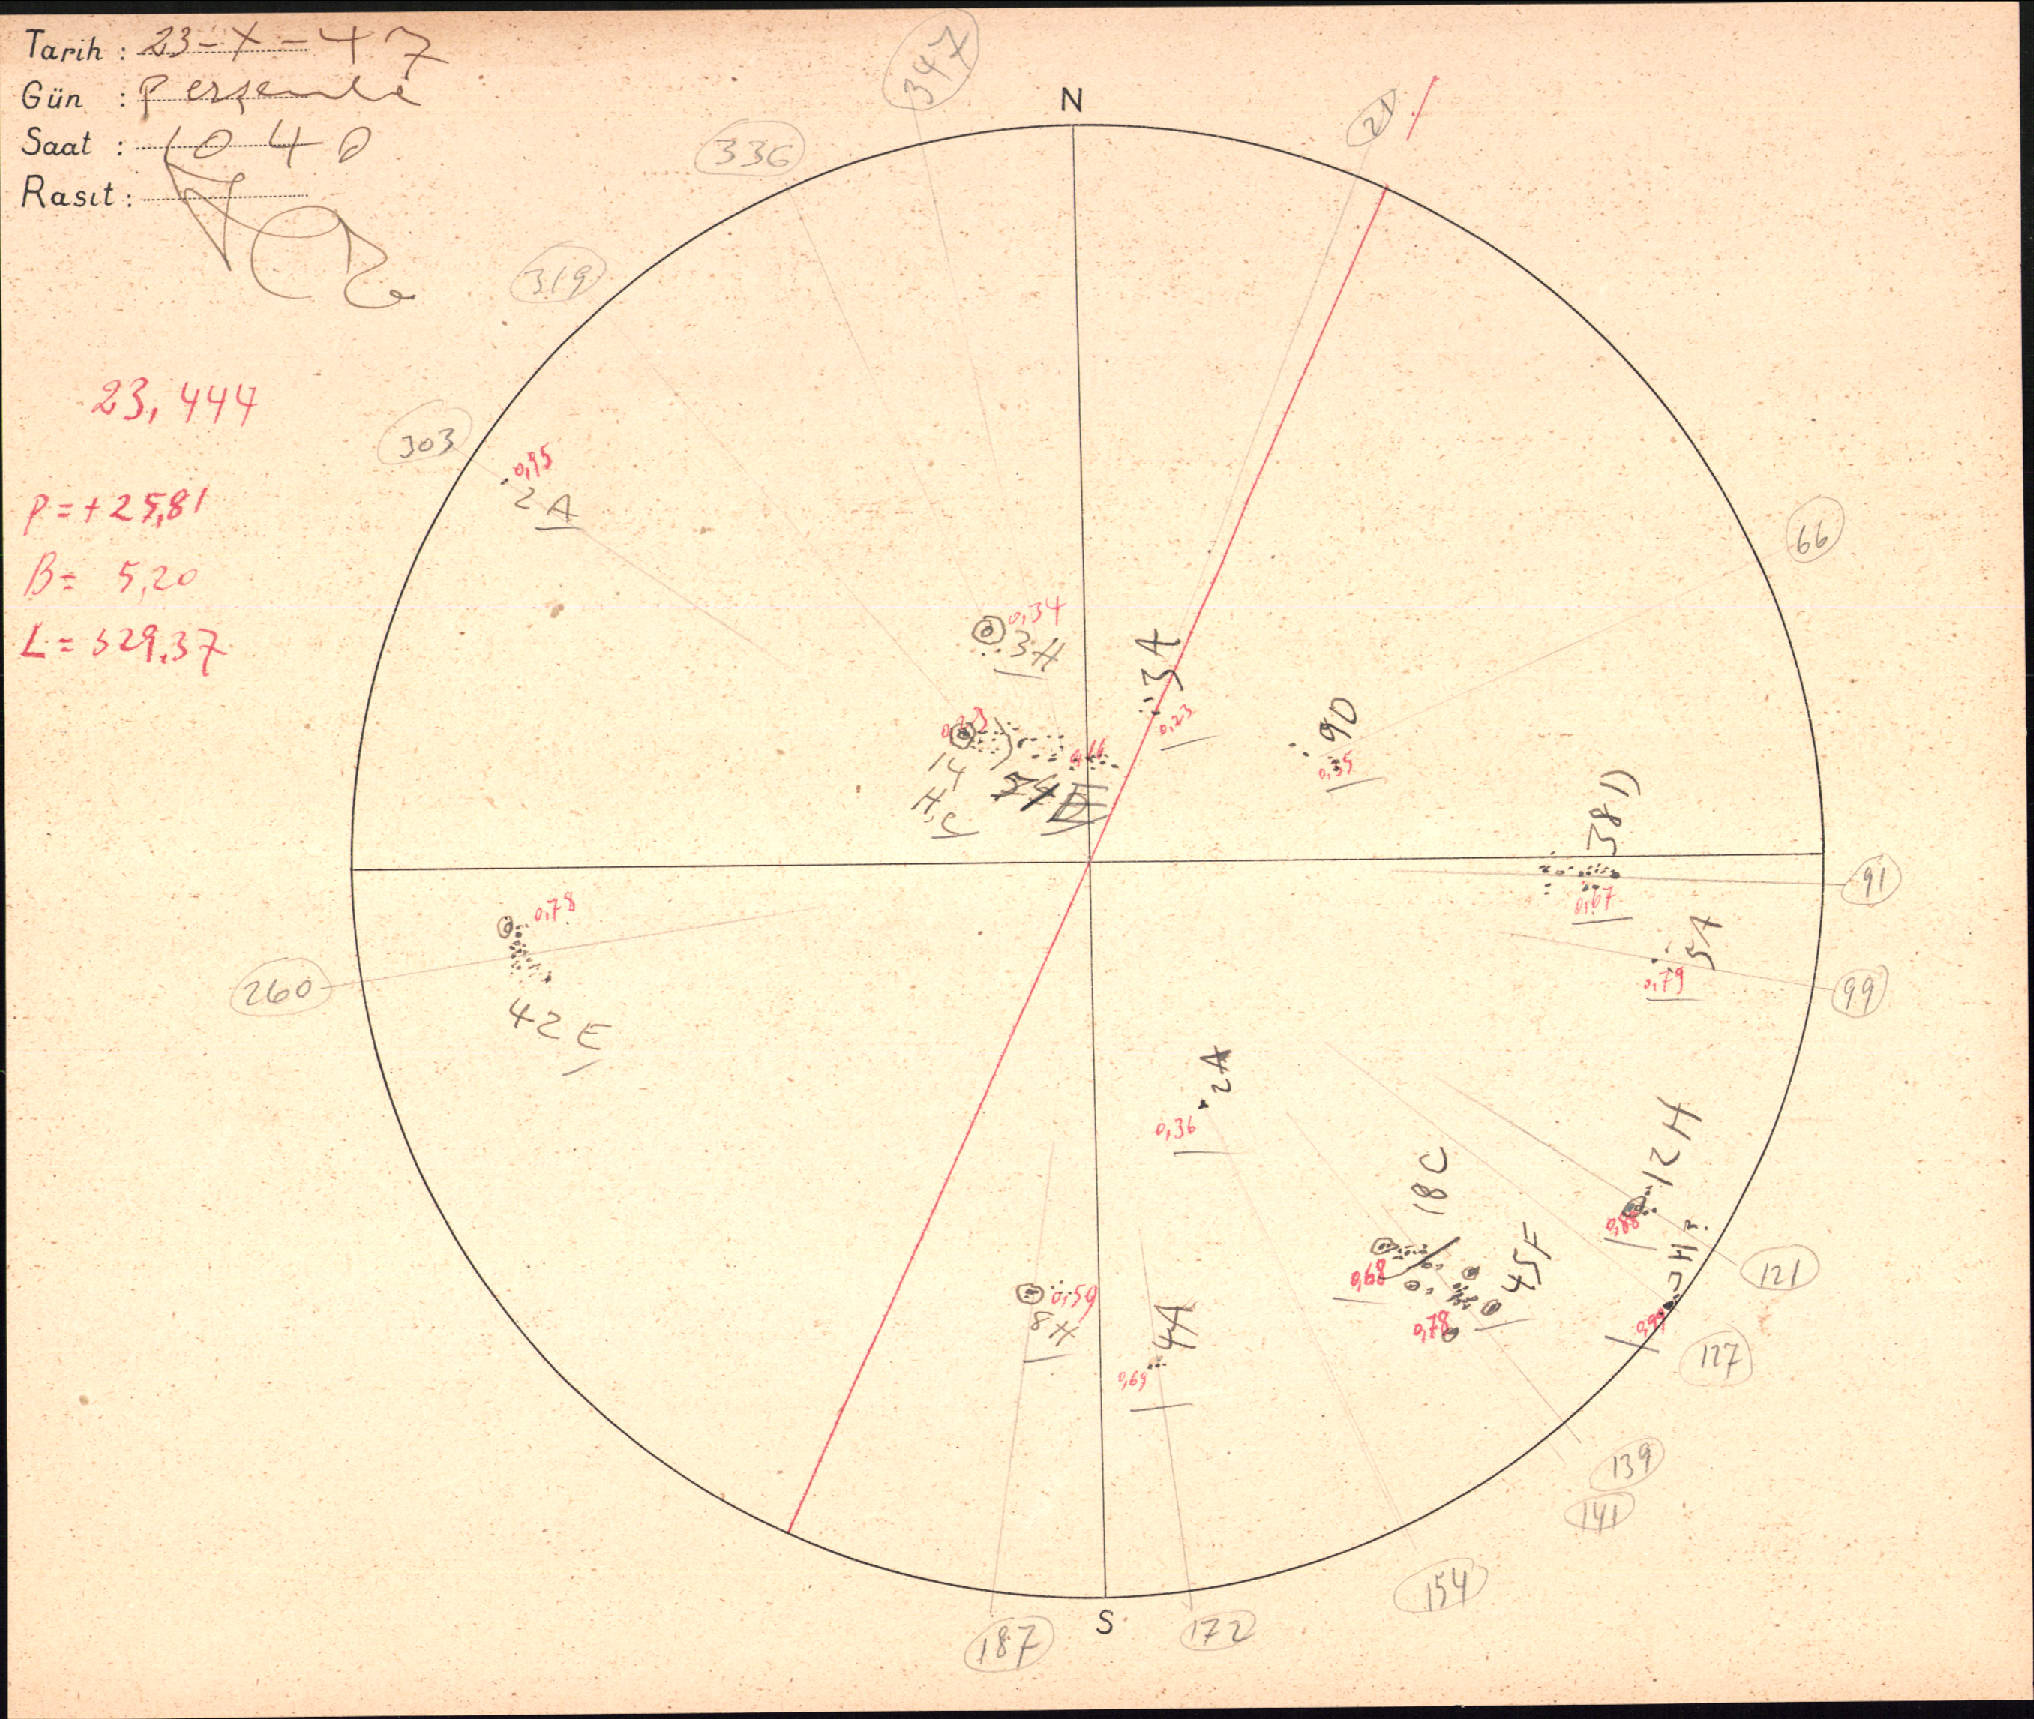 Tarih : 23-X-47
Gün : Perşembe
Saat : 1040
Rasıt :
347
N
21
336
319
303
23,444
0,95
2A
P = + 25,81
B = 5,20
L = 329,37
66
0,34
3H
3A
0,23
9D
0,35
0,16
14
H,C
E
38D
0,67
91
0,78
42E
260
5A
0,79
99
2A
0,36
12H
0,88
18C
0,68
45F
0,78
H?
0,99
121
127
0,59
8H
4A
0,69
139
141
154
187
S
172